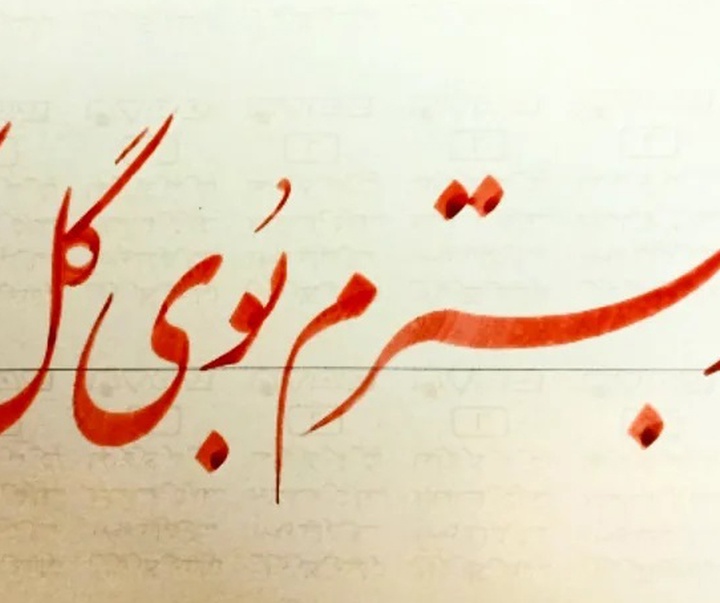 بسترم بُوی گل